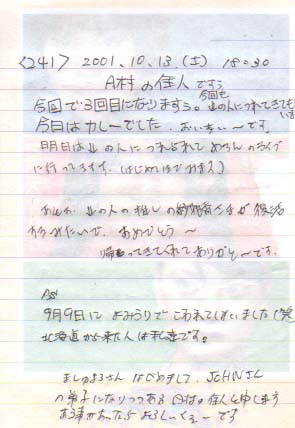 <241> 2001.10.13.(土) 18:30
A村の住人ですぅ
今回も
今回で3回目になりますぅ。北の人につれてきてもら
いました
今日はカレーでした。おいしい〜です。
明日は北の人につれられて のライブ
に行ってきます。(はじめて
北の人の推しの 選手が復活
みたいで、おめでとう〜
帰ってきてくれてありがと〜です。
PS
9月9日によみうりでこわれてしまいました(笑)
北海道から来た人は私達です。
ましゅまろさん はじめまして、JOHNさん
の弟子になりつつあるA村の住人と申します
よろしくぅ〜です